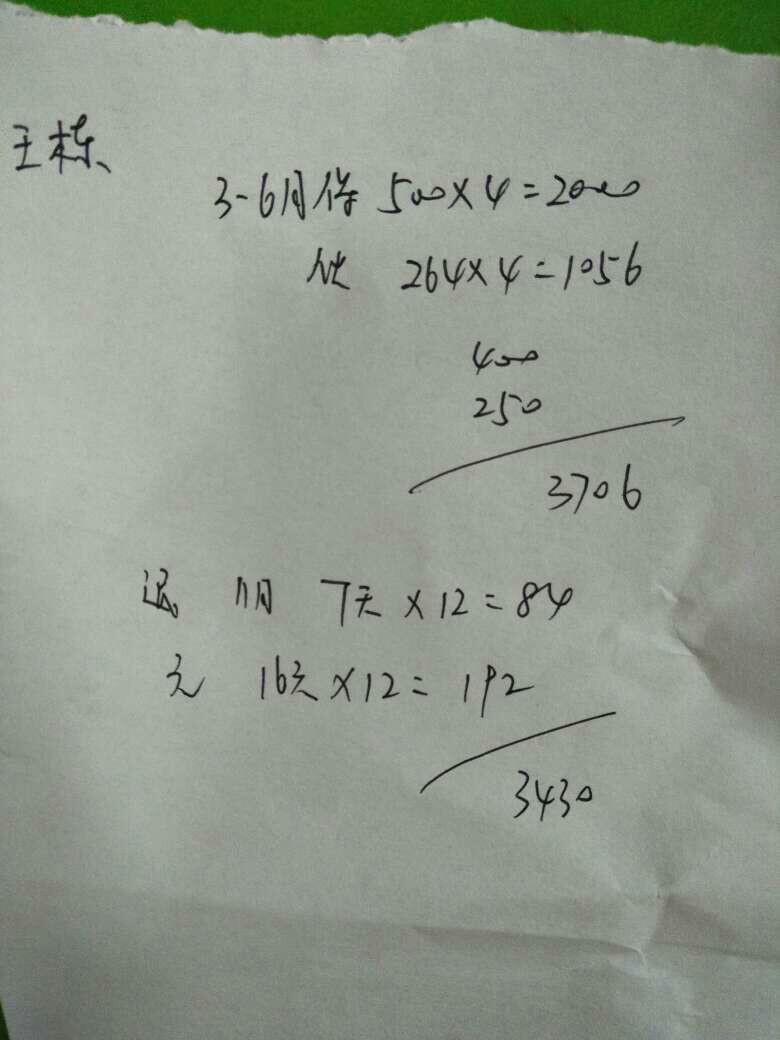 王栋
3-6月保 500×4=2000
伙 264×4=1056
400
250
3706
退 11月 7天×12=84
元 16天×12=192
3430